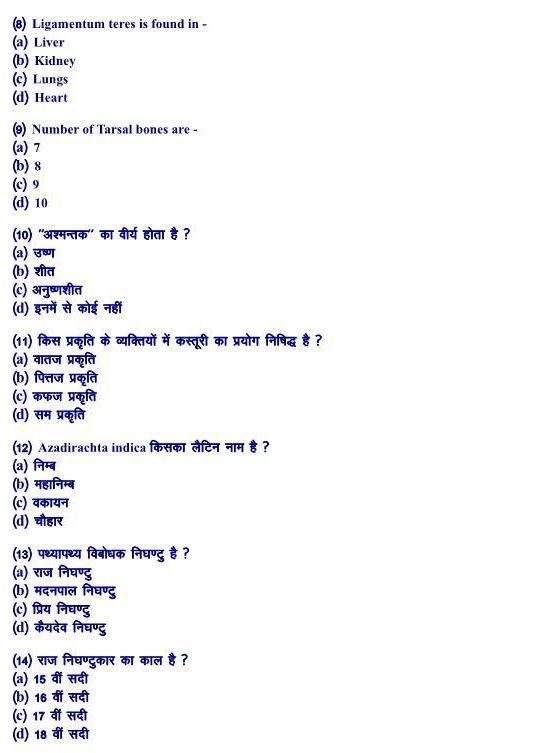 (8) Ligamentum teres is found in -
(a) Liver
(b) Kidney
(c) Lungs
(d) Heart
(9) Number of Tarsal bones are -
(a) 7
(b) 8
(c) 9
(d) 10
(10) "अश्मन्तक" का वीर्य होता है ?
(a) उष्ण
(b) शीत
(c) अनुष्णशीत
(d) इनमें से कोई नहीं
(11) किस प्रकृति के व्यक्तियों में कस्तूरी का प्रयोग निषिद्ध है ?
(a) वातज प्रकृति
(b) पित्तज प्रकृति
(c) कफज प्रकृति
(d) सम प्रकृति
(12) Azadirachta indica किसका लैटिन नाम है ?
(a) निम्ब
(b) महानिम्ब
(c) वकायन
(d) चौहार
(13) पथ्यापथ्य विबोधक निघण्टु है ?
(a) राज निघण्टु
(b) मदनपाल निघण्टु
(c) प्रिय निघण्टु
(d) कैयदेव निघण्टु
(14) राज निघण्टुकार का काल है ?
(a) 15 वीं सदी
(b) 16 वीं सदी
(c) 17 वीं सदी
(d) 18 वीं सदी